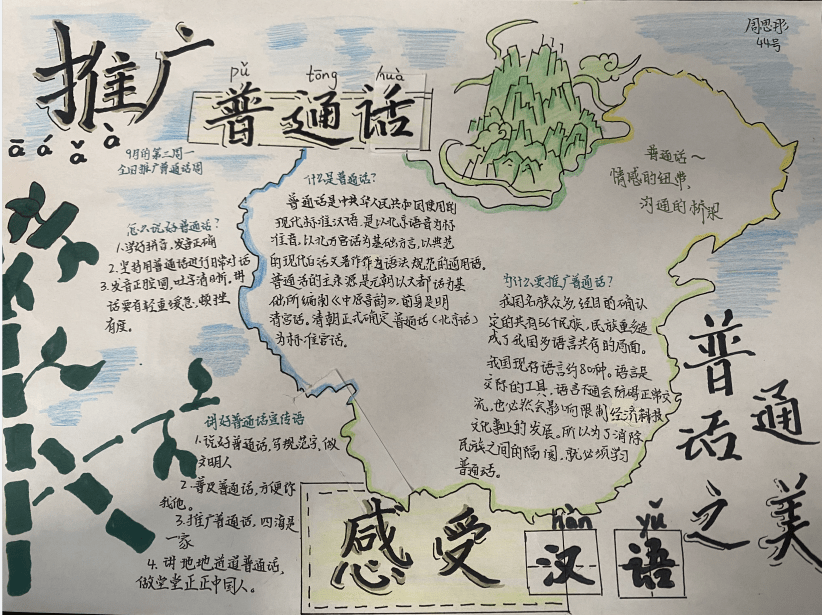 推广
pǔ tōng huà
普通话
周思彤
44号
ā á ǎ à
9月的第三周一
全国推广普通话周
怎么说好普通话?
1.学好拼音,发音正确
2.坚持用普通话进行日常对话
3.发音正腔圆,吐字清晰。讲
话要有轻重缓急、顿挫
有度。
什么是普通话?
普通话是中华人民共和国使用的
现代标准汉语,是以北京语音为标
准音,以北方官话为基础方言,以典范
的现代白话文著作作为语法规范的通用语。
普通话的主来源是元朝以大都话为基
础所编制《中原音韵》。前身是明
清官话。清朝正式确定普通话(北京话)
为标准官话。
普通话~
情感的纽带,
沟通的桥梁
为什么要推广普通话?
我国名族众多,经目的确认
定的共有56个民族,民族重多造
成了我国多语言共存的局面。
我国现存语言约80种。语言是
交际的工具,语言不通会防碍正常交
流,也必然会影响限制经济科技
文化事业的发展。所以为了消除
民族之间的隔阂,就必须学习
普通话。
讲好普通话宣传语
1.说好普通话,写规范字,做
文明人
2.普及普通话,方便你
我他。
3.推广普通话,四海是
一家
4.讲地地道道普通话,
做堂堂正正中国人。
普通
话
之美
hàn yǔ
感受汉语